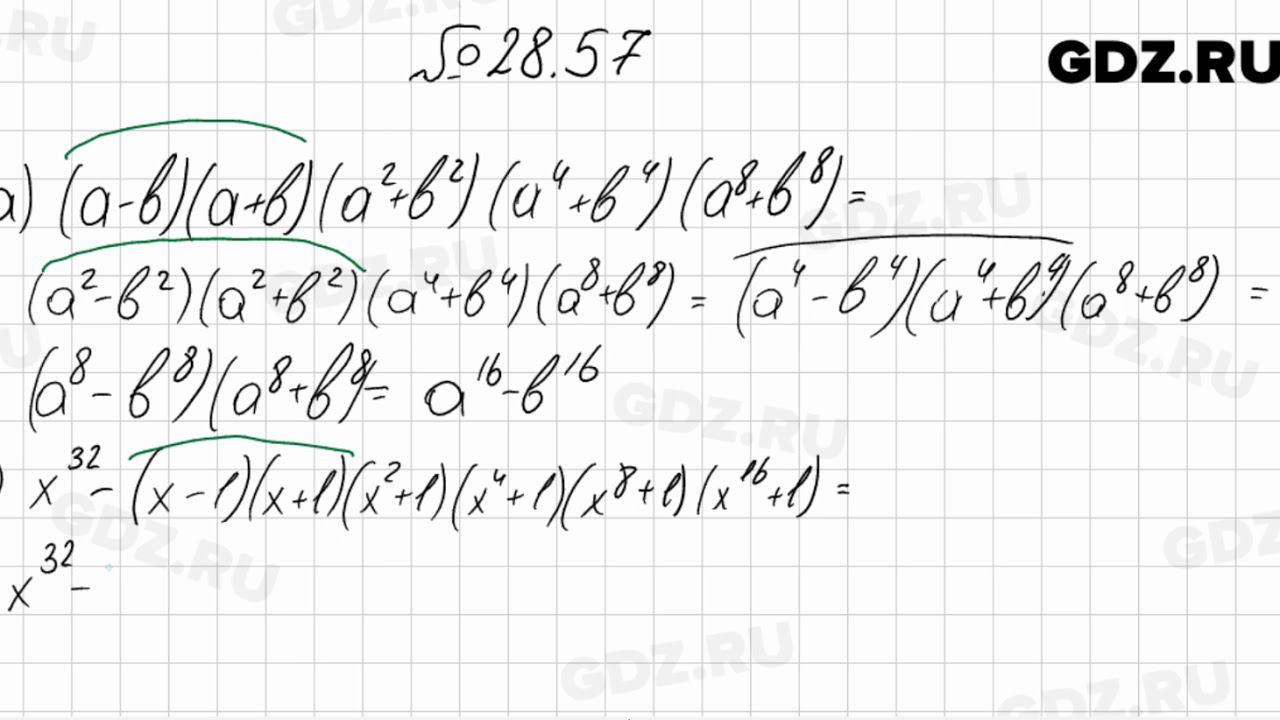 №28.57
GDZ.RU
а) (a-b)(a+b)(a²+b²)(a⁴+b⁴)(a⁸+b⁸)=
(a²-b²)(a²+b²)(a⁴+b⁴)(a⁸+b⁸)= (a⁴-b⁴)(a⁴+b⁴)(a⁸+b⁸) =
(a⁸-b⁸)(a⁸+b⁸)= a¹⁶-b¹⁶
) x³²- (x-1)(x+1)(x²+1)(x⁴+1)(x⁸+1)(x¹⁶+1) =
x³²-